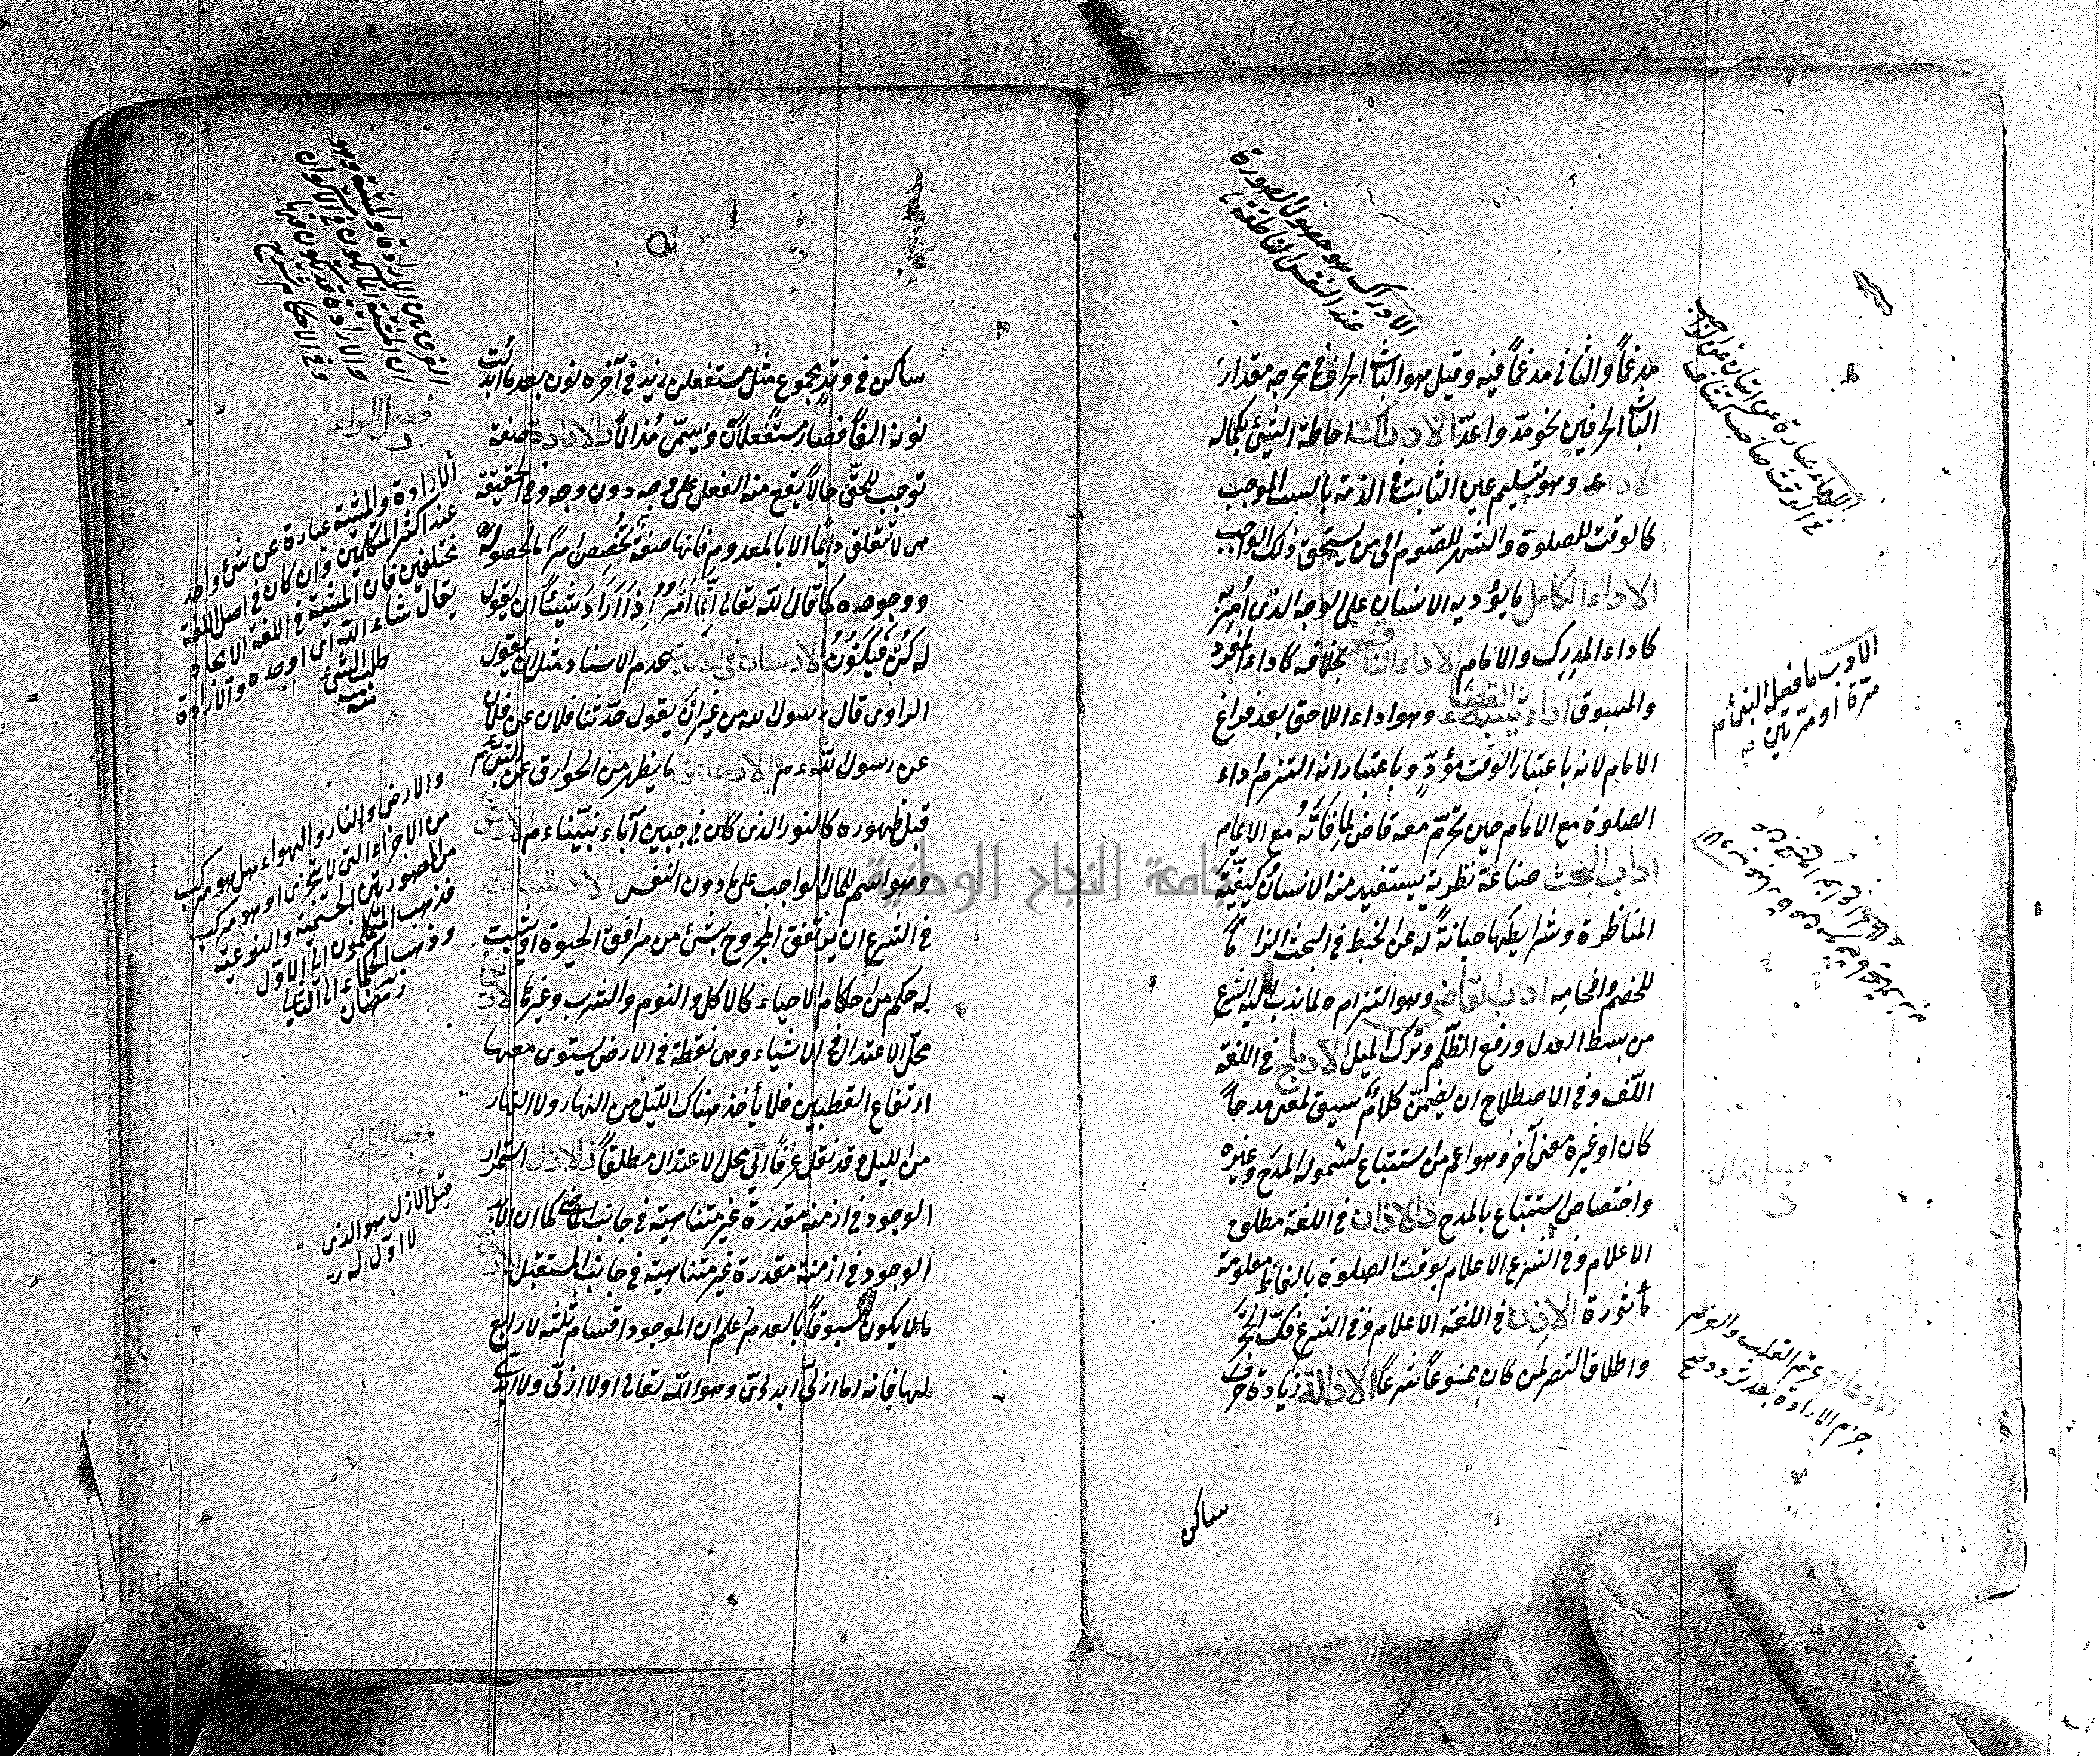 الادراك هو حصول الصورة
عند النفس الناطقة
مدغمًا والثاني مدغمًا فيه وقيل هو الباث الحرف في مخرجه مقدار
الباث الحرفين نحو مدّ واعدّ الادراك احاطة الشيئ بكماله
الاداء وهو تسليم عين الثابت في الذمة بالسبب الموجب
كالوقت للصلوة والشهر للصوم الى من يستحق ذلك الواجب
الاداء الكامل ما يؤديه الانسان على الوجه الذى اُمِرَ به
كاداء المدرِك والامام الاداء الناقص بخلافه كاداء المنفرد
والمسبوق اداء يشبه القضاء وهو اداء اللاحق بعد فراغ
الامام لانه باعتبار الوقت مؤدٍّ وباعتبار انه التزم اداء
الصلوة مع الامام حين تحرّم معه قاضٍ لِما فَاتَهُ مع الامام
اداب البحث صناعة نظرية يستفيد منه الانسان كيفيّة
المناظرة وشرايطها صيانةً له عن الخبط في البحث الزاما
للخصم وافحامه ادب القاضى وهو التزامه لما ندب اليه الشرع
من بسط العدل ورفع الظلم وترك الميل الادماج في اللغة
اللّف وفي الاصطلاح ان يضمّن كلامٌ سيق لمعنى مدحاً
كان او غيره معنى آخر وهو اعم من الاستتباع لشموله المدح وغيره
واختصاص الاستتباع بالمدح ذ الاذان في اللغة مطلق
الاعلام وفي الشرع الاعلام بوقت الصلوة بالفاظ معلومة
مأثورة الاذن في اللغة الاعلام وفي الشرع فكّ الحجر
واطلاق التصر لمن كان ممنوعاً شرعاً الاذالة زيادة حرف
ساكن
عبارة عن اتيان عين الواجب
في الوقت
الادب ما فعله النبى م
مرّة او مرّتين
الاذعان عزم القلب والعزم
جزم الارادة بعد تردد
ساكن في وتدٍ مجموع مثل مستفعلن زيد في آخره نون بعد ما ابدلت
نونه الفاً فصار مستفعلان ويسمى مُذالا ر الارادة صفة
توجب للحىّ حالاً يقع منه الفعل على وجه دون وجه وفي الحقيقة
هى لا تتعلق دائما الا بالمعدوم فانها صفة تخصّص امرًا لحصوله
ووجوده كما قال الله تعالى اِنَّمَا اَمْرُهُ اِذَا اَرَادَ شَيْئًا ان يقول
له كُنْ فَيَكُونُ الارسال في الحديث عدم الاسناد مثل ان يقول
الراوى قال رسول الله من غير اَنْ يقول حدّثنا فلان عن فلان
عن رسول الله م الارهاص ما يظهر من الخوارق عن النبى م
قبل ظهوره كالنور الذى كان في جبين آباء نبيّنا م الارش
وهو اسم للمال الواجب على ما دون النفس الارتثاث
في الشرع ان يرتفق المجروح بشئ من مرافق الحيوة او يثبت
له حكم من احكام الاحياء كالاكل والنوم والشرب وغيرها الارين
محلّ الاعتدال في الاشياء وهى نقطة في الارض يستوى معها
ارتفاع القطبين فلا يأخذ هناك الليل من النهار ولا النهار
من الليل وقد نقل عرفًا الى محل الاعتدال مطلقاً ز الازل استمرار
الوجود في ازمنة مقدرة غير متناهية في جانب الماضى كما ان الابد
الوجود في ازمنة مقدرة غير متناهية في جانب المستقبل الازلى
ما لا يكون مسبوقاً بالعدم اعلم ان الموجود اقسام ثلثه لا رابع
لها فانه اما ازلىّ ابدىّ وهو الله تعالى او لا ازلى ولا ابدىّ
الفرق بين الارادة والمشية هو
ان المشية
والارادة قد تكون
فصل الراء
الارادة والمشية عبارة عن شئ واحد
عند اكثر المتكلمين وان كان في اصل اللغة
مختلفين فان المشية في اللغة الايجاد
يقال شاء الله اى اوجده والارادة
طلب الشئ
والارض والنار والهواء هل هو مركب
من الاجزاء التى لا تتجزى او هو مركب
من الصورتين الجسمية والنوعية
فذهب المتكلمون الى الاول
وذهب الحكماء الى الثانى
رمضان
فصل الزاى
قيل الازل هو الذى
لا اول له
جامعة النجاح الوطنية